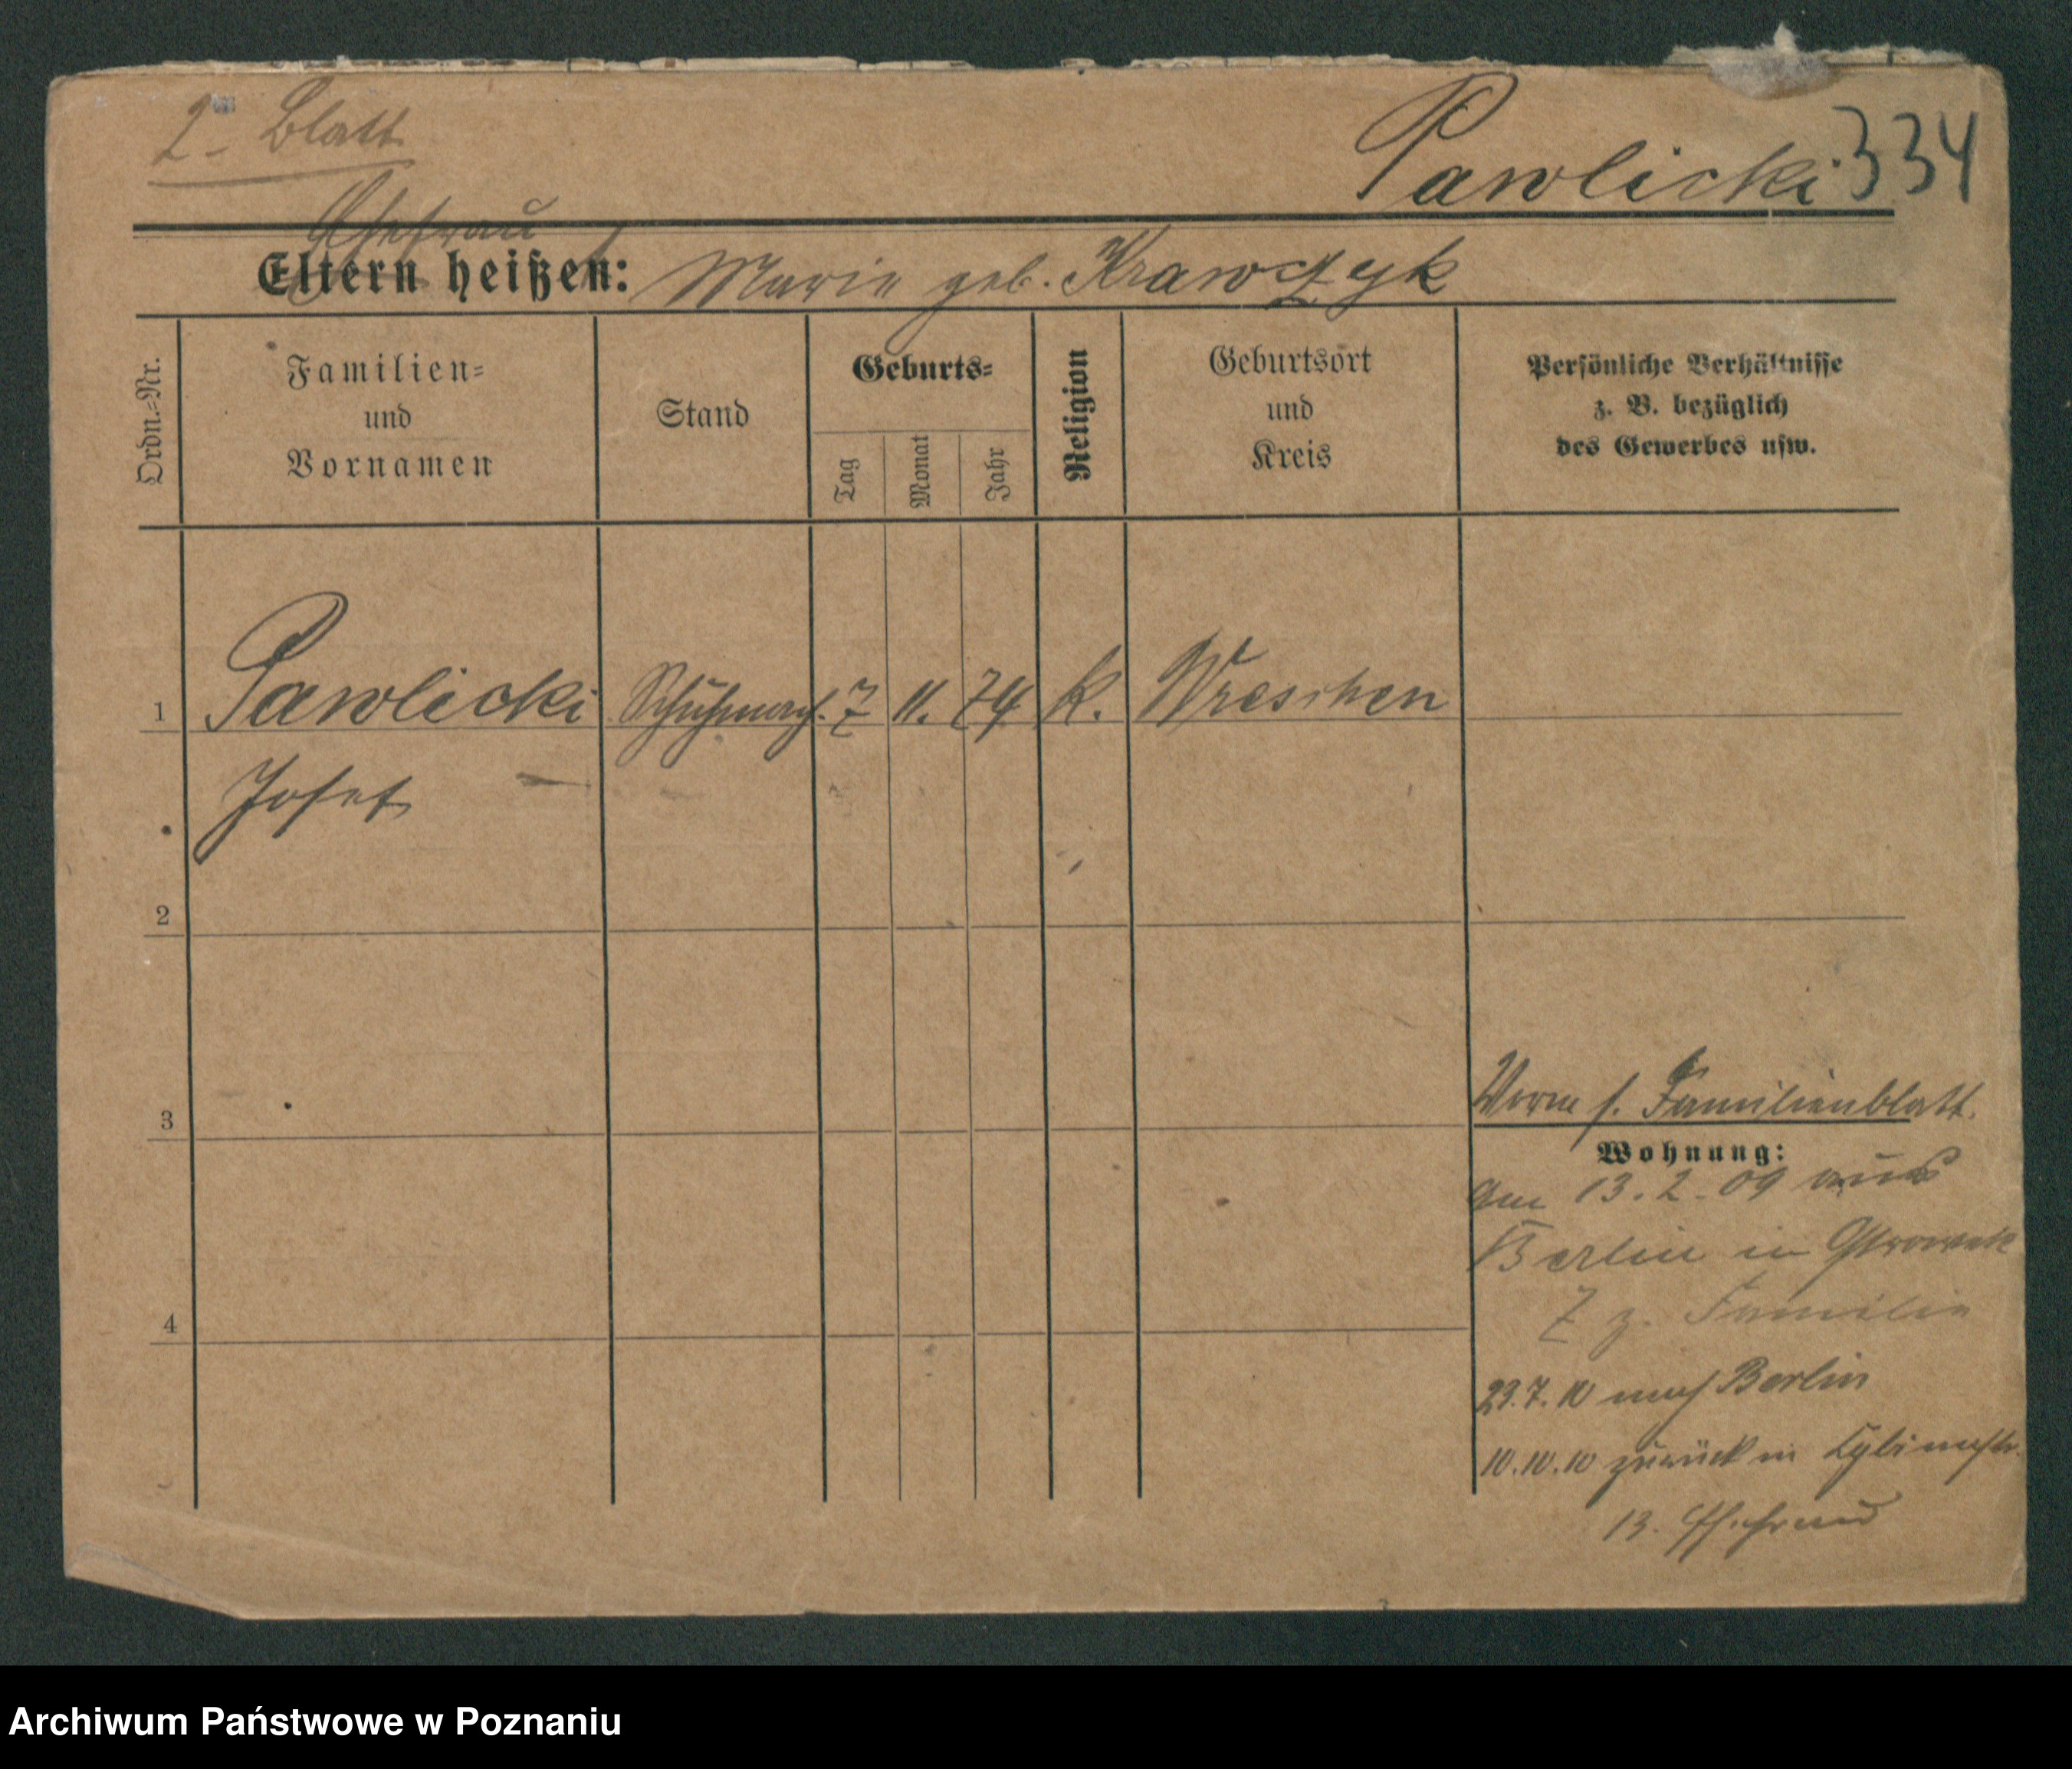 2tes Blatt
Pawlicki 334
Ehefrau
Eltern heißen: Marie geb. Krawczyk
Ordn.=Nr.
Familien=
und
Vornamen
Stand
Geburts=
Tag
Monat
Jahr
Religion
Geburtsort
und
Kreis
Persönliche Verhältnisse
z. B. bezüglich
des Gewerbes usw.
1 Pawlicki Schuhmach. 7 11. 74 k. Wreschen
Josef
2
3
4
s. Familienblatt.
Wohnung:
Am 13.2.09 aus
Berlin in Ostrowek
7 z. Familie
23.7.10 nach Berlin
10.10.10 zurück in Cybinastr.
13. Ehefrau
Archiwum Państwowe w Poznaniu